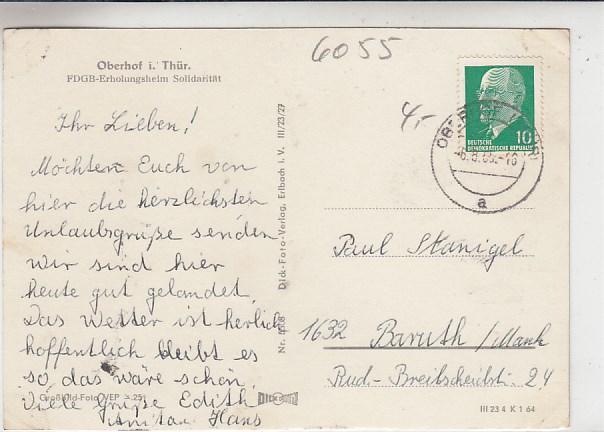 Oberhof i. Thür.
FDGB-Erholungsheim Solidarität
6055
4,-
Ihr Lieben!
Möchten Euch von
hier die herzlichsten
Urlaubsgrüße senden
wir sind hier
heute gut gelandet.
Das Wetter ist herlich
hoffentlich bleibt es
so, das wäre schön.
Viele Grüße Edith
Anita Hans
Großbild-Foto VEP
Nr.
Dick-Foto-Verlag, Erlbach i. V. III/23/27
DEUTSCHE
DEMOKRATISCHE REPUBLIK
10
a
Paul Stanigel
1632 Baruth /Mark
Rud.-Breitscheidstr. 24
DICK
III 23 4 K 1 64